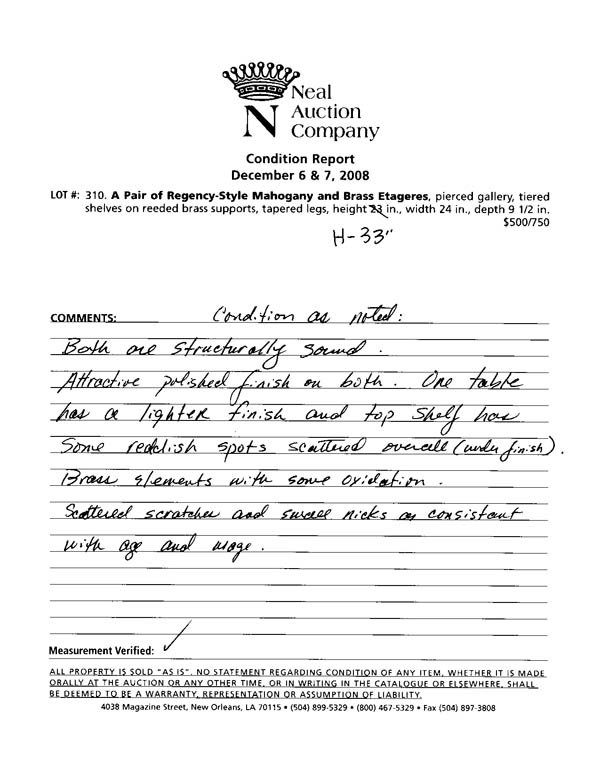 Neal
N Auction
Company
Condition Report
December 6 & 7, 2008
LOT #: 310. A Pair of Regency-Style Mahogany and Brass Etageres, pierced gallery, tiered
shelves on reeded brass supports, tapered legs, height 23 in., width 24 in., depth 9 1/2 in.
$500/750
H-33"
COMMENTS: Condition as noted:
Both are structurally sound.
Attractive polished finish on both. One table
has a lighter finish and top shelf has
Some reddish spots scattered overall (under finish).
Brass elements with some oxidation.
Scattered scratches and small nicks as consistant
with age and usage.
Measurement Verified: ✓
ALL PROPERTY IS SOLD "AS IS". NO STATEMENT REGARDING CONDITION OF ANY ITEM, WHETHER IT IS MADE
ORALLY AT THE AUCTION OR ANY OTHER TIME, OR IN WRITING IN THE CATALOGUE OR ELSEWHERE, SHALL
BE DEEMED TO BE A WARRANTY, REPRESENTATION OR ASSUMPTION OF LIABILITY.
4038 Magazine Street, New Orleans, LA 70115 • (504) 899-5329 • (800) 467-5329 • Fax (504) 897-3808